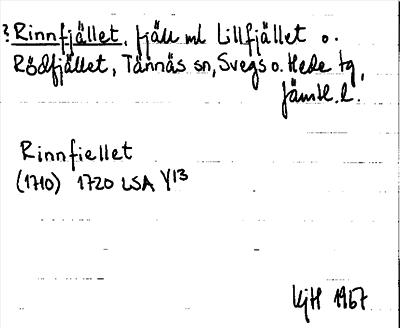 ?Rinnfjället, fjäll ml Lillfjället o.
Rödfjället, Tännäs sn, Svegs o. Hede tg,
Jämtl. l.
Rinnfiellet
(1710) 1720 LSA Y13
KjH 1967